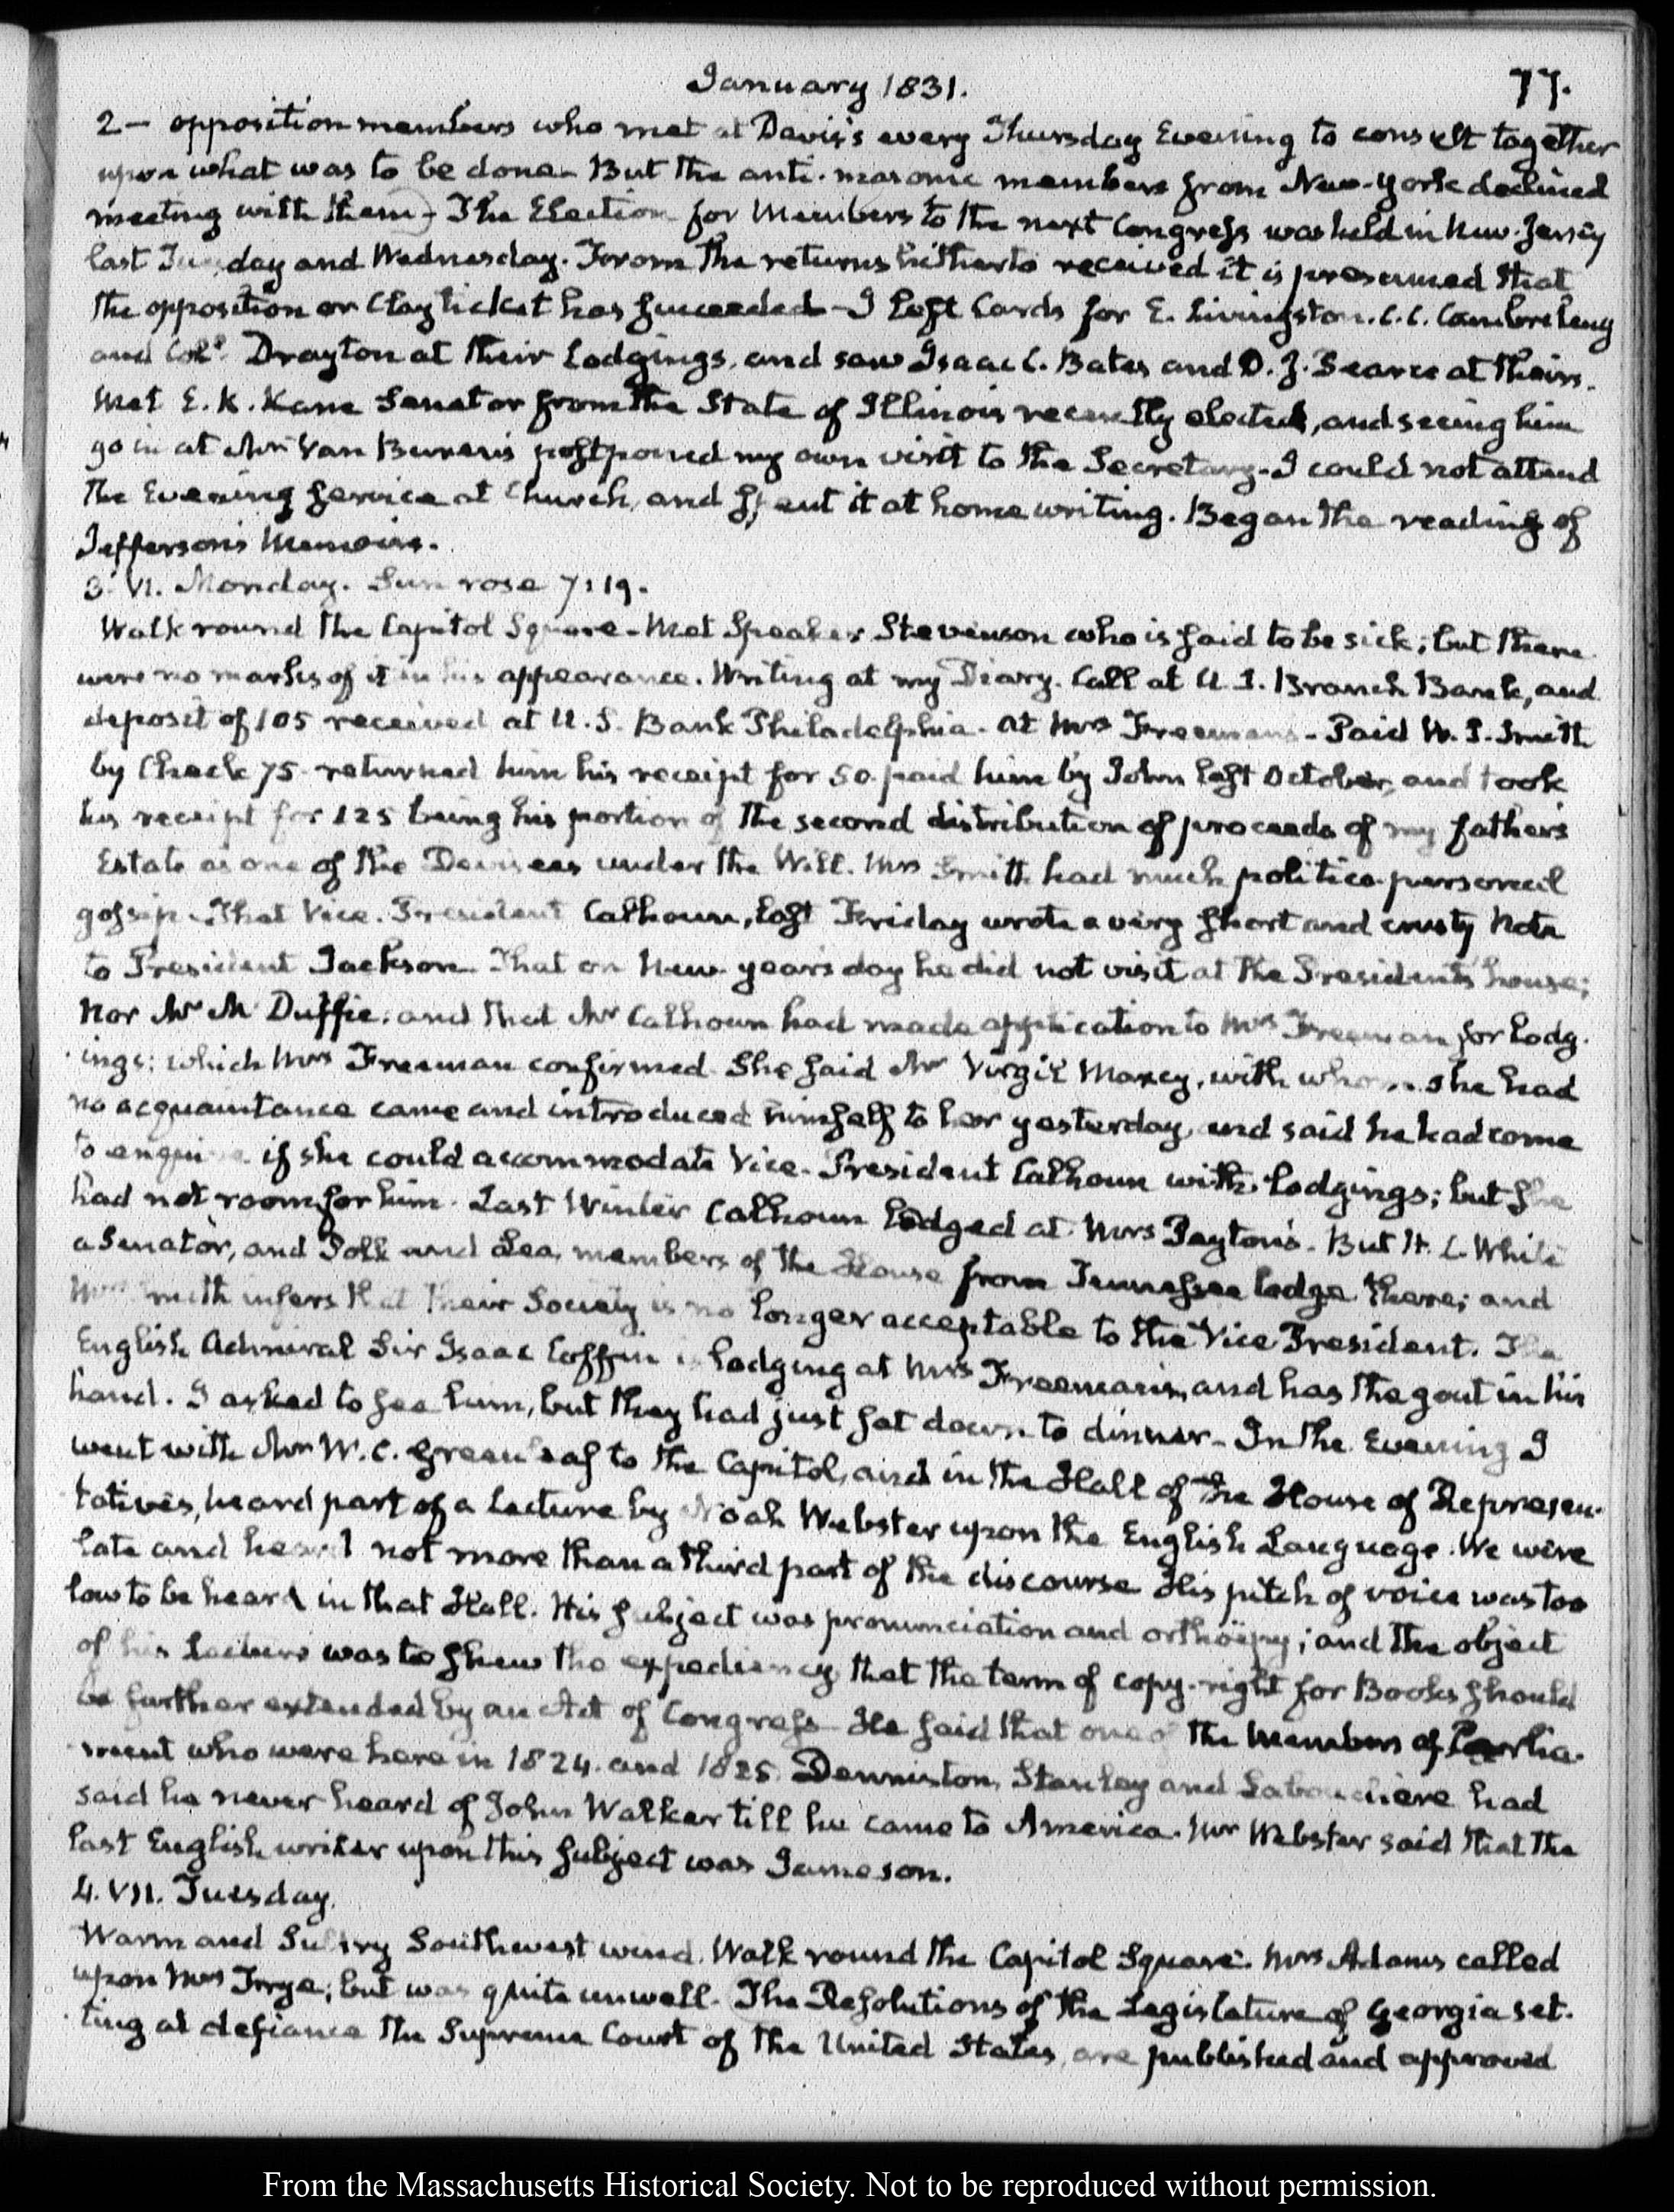 January 1831.
77.
2 — opposition members who met at Davis's every Thursday Evening to consult together
upon what was to be done - But the anti-masonic members from New-York declined
meeting with them - The Election for Members to the next Congress was held in New-Jersey
last Tuesday and Wednesday. From the returns hitherto received it is presumed that
the opposition or Clay ticket has succeeded - I left Cards for E. Livingston. C. C. Cambreleng
and Coll. Drayton at their Lodgings, and saw Isaac C. Bates and D. J. Pearce at theirs.
Met E. K. Kane Senator from the State of Illinois recently elected, and seeing him
go in at Mr Van Buren's postponed my own visit to the Secretary - I could not attend
the Evening service at Church, and spent it at home writing. Began the reading of
Jefferson's Memoirs.
3. VI. Monday. Sun rose 7:19.
Walk round the Capitol Square - Met Speaker Stevenson who is said to be sick; but there
were no marks of it in his appearance. Writing at my Diary. Call at U. S. Branch Bank, and
deposit of 105 received at U. S. Bank Philadelphia. at Mrs Freeman's - Paid W. S. Smith
by Check 75. returned him his receipt for 50 paid him by John last October, and took
his receipt for 125 being his portion of the second distribution of proceeds of my father's
Estate as one of the Devisees under the Will. Mrs Smith had much politico-personal
gossip. That Vice-President Calhoun, last Friday wrote a very short and crusty Note
to President Jackson. That on New-years day he did not visit at the President's house;
nor Mr Mc Duffie. and that Mr Calhoun had made application to Mrs Freeman for lodg-
ings; which Mrs Freeman confirmed. She said Mr Virgil Maxcy, with whom she had
no acquaintance came and introduced himself to her yesterday, and said he had come
to enquire if she could accommodate Vice-President Calhoun with lodgings; but she
had not room for him. Last Winter Calhoun lodged at Mrs Peyton's. But H. L. White
a Senator, and Polk and Lea, members of the House from Tennessee lodge there; and
Mrs Smith infers that their Society is no longer acceptable to the Vice President. The
English Admiral Sir Isaac Coffin is lodging at Mrs Freeman's, and has the gout in his
hand. I asked to see him, but they had just sat down to dinner - In the Evening I
went with Mr W. C. Greenleaf to the Capitol, and in the Hall of the House of Represen-
tatives, heard part of a lecture by Noah Webster upon the English Language. We were
late and heard not more than a third part of the discourse His pitch of voice was too
low to be heard in that Hall. His subject was pronunciation and orthöepy; and the object
of his Lecture was to shew the expediency that the term of copy-right for Books should
be further extended by an Act of Congress - He said that one of the Members of Parlia-
ment who were here in 1824. and 1825 Denniston, Stanley and Labouchere had
said he never heard of John Walker till he came to America. Mr Webster said that the
last English writer upon this subject was Jameson.
4. VII. Tuesday.
Warm and Sultry Southwest wind. Walk round the Capitol Square. Mrs Adams called
upon Mrs Frye; but was quite unwell. The Resolutions of the Legislature of Georgia set-
ting at defiance the Supreme Court of the United States, are published and approved
From the Massachusetts Historical Society. Not to be reproduced without permission.